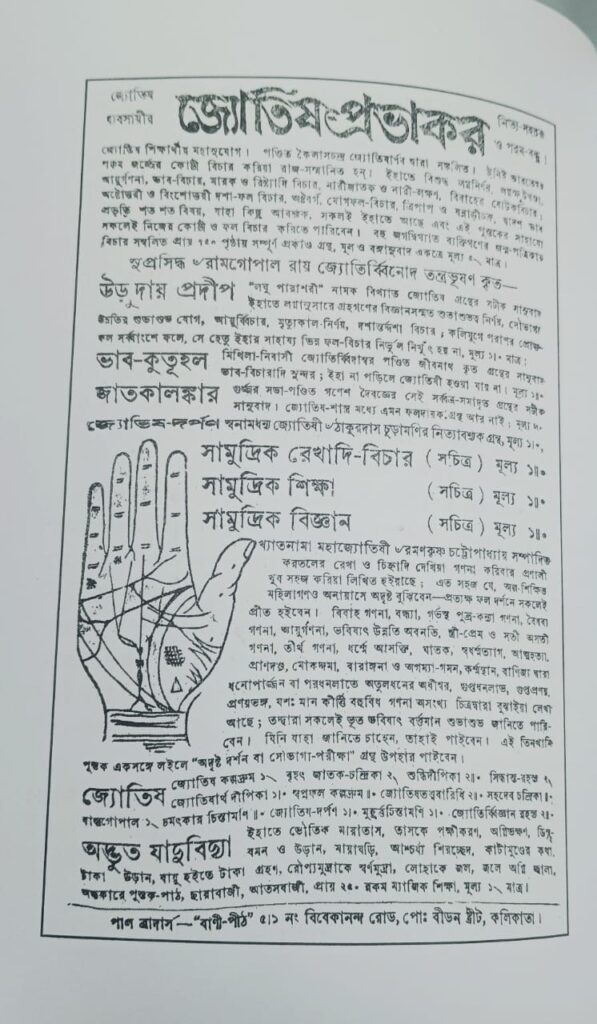 জ্যোতিষ
ব্যবসায়ীর
জ্যোতিষ-প্রভাকর
নিত্য-সহচর
ও পরম-বন্ধু।
জ্যোতিষ শিক্ষার্থীর মহাসুযোগ। পণ্ডিত কৈলাসচন্দ্র জ্যোতিষার্ণব দ্বারা সঙ্কলিত। ইনিই ভারতেশ্বর
পঞ্চম জর্জ্জের কোষ্ঠী বিচার করিয়া রাজ-সম্মানিত হন। ইহাতে বিশুদ্ধ লগ্ননির্ণয়,
আয়ুর্গণনা, ভাব-বিচার, মারক ও রিষ্ট্যাদি বিচার, নারীজাতক ও নারী-লক্ষণ, বিবাহের যোটকবিচার,
অষ্টোত্তরী ও বিংশোত্তরী দশা-ফল বিচার, অষ্টবর্গ, যোগফল-বিচার, ত্রিপাপ ও দ্বাদশ ভাব
প্রভৃতি শত শত বিষয়, যাহা কিছু আবশ্যক, সকলই ইহাতে আছে এবং এই পুস্তকের সাহায্যে
সকলেই নিজের কোষ্ঠী ও ফল বিচার করিতে পারিবেন। বহু জগদ্বিখ্যাত ব্যক্তিগণের জন্ম-পত্রিকার
বিচার সম্বলিত প্রায় ৭৫০ পৃষ্ঠায় সম্পূর্ণ প্রকাণ্ড গ্রন্থ, মূল ও বঙ্গানুবাদ একত্রে মূল্য ৫৲ মাত্র।
সুপ্রসিদ্ধ ৺রামগোপাল রায় জ্যোতির্ব্বিনোদ তন্ত্রভূষণ কৃত—
উড়ুদায় প্রদীপ
“লঘু পারাশরী” নামক বিখ্যাত জ্যোতিষ গ্রন্থের সটীক সানুবাদ
ইহাতে লগ্নানুসারে গ্রহগণের বিজ্ঞানসম্মত শুভাশুভত্ব নির্ণয়, সৌভাগ্য
উন্নতির শুভাশুভ যোগ, আয়ুর্ব্বিচার, মৃত্যুকাল-নির্ণয়, দশান্তর্দ্দশা বিচার; কলিযুগে পরাশর প্রোক্ত-
ফল সর্ব্বাংশে ফলে, সে হেতু ইহার সাহায্য ভিন্ন ফল-বিচার নির্ভুল নিখুঁৎ হয় না, মূল্য ১৷৹ মাত্র।
ভাব-কুতূহল
মিথিলা-নিবাসী জ্যোতির্ব্বিদ্যাম্বর পণ্ডিত জীবনাথ কৃত গ্রন্থের সানুবাদ
ভাব-বিচারাদি সুন্দর; ইহা না পড়িলে জ্যোতিষী হওয়া যায় না। মূল্য ১৷৹
জাতকালঙ্কার
গুর্জ্জর সভা-পণ্ডিত গণেশ দৈবজ্ঞের সেই সর্ব্বত্র-সমাদৃত গ্রন্থের সটীক
সানুবাদ। জ্যোতিষ-শাস্ত্র মধ্যে এমন ফলদায়ক গ্রন্থ আর নাই; মূল্য
জ্যোতিষ-দর্পণ স্বনামধন্য জ্যোতিষী ৺ঠাকুরদাস চূড়ামণির নিত্যাবশ্যক গ্রন্থ, মূল্য ১৷৹,
সামুদ্রিক রেখাদি-বিচার ( সচিত্র ) মূল্য ১॥৹
সামুদ্রিক শিক্ষা ( সচিত্র ) মূল্য ১॥৹
সামুদ্রিক বিজ্ঞান ( সচিত্র ) মূল্য ১॥৹
খ্যাতনামা মহাজ্যোতিষী ৺রমণকৃষ্ণ চট্টোপাধ্যায় সম্পাদিত
করতলের রেখা ও চিহ্নাদি দেখিয়া গণনা করিবার প্রণালী
খুব সহজ করিয়া লিখিত হইয়াছে; এত সহজ যে, অল্প-শিক্ষিত
মহিলাগণও অনায়াসে অদৃষ্ট বুঝিবেন—প্রত্যক্ষ ফল দর্শনে সকলেই
প্রীত হইবেন। বিবাহ গণনা, বন্ধ্যা, গর্ভস্থ পুত্র-কন্যা গণনা, বৈধব্য
গণনা, আয়ুর্গণনা, ভবিষ্যৎ উন্নতি অবনতি, স্ত্রী-প্রেম ও সতী অসতী
গণনা, তীর্থ গণনা, ধর্ম্মে আসক্তি, ঘাতক, স্বধর্ম্মত্যাগ, আত্মহত্যা,
প্রাণদণ্ড, মোকদ্দমা, বারাঙ্গনা ও অগম্যা-গমন, কর্ম্মস্থান, বাণিজ্য দ্বারা
ধনোপার্জ্জন বা পরধনলাভে অতুলধনের অধীশ্বর, গুপ্তধনলাভ, গুপ্তপ্রণয়,
প্রণয়ভঙ্গ, যশঃ মান কীর্ত্তি বহুবিধ গণনা অসংখ্য চিত্রদ্বারা বুঝাইয়া লেখা
আছে; তদ্দ্বারা সকলেই ভূত ভবিষ্যৎ বর্ত্তমান শুভাশুভ জানিতে পারি-
বেন। যিনি যাহা জানিতে চাহেন, তাহাই পাইবেন। এই তিনখানি
পুস্তক একসঙ্গে লইলে “অদৃষ্ট দর্শন বা সৌভাগ্য-পরীক্ষা” গ্রন্থ উপহার পাইবেন।
জ্যোতিষ
জ্যোতিষ কল্পদ্রুম ১৲ বৃহৎ জাতক-চন্দ্রিকা ২৲ শুদ্ধিদীপিকা ২॥৹ সিদ্ধান্ত-রহস্য ২৲
জ্যোতিষার্থ দীপিকা ১৷৹ স্বপ্নফল কল্পদ্রুম॥৹ জ্যোতিষতত্ত্ববারিধি ২॥৹ সহদেব চন্দ্রিকা॥৹
বাস্তুগোপাল ১৲ চমৎকার চিন্তামণি॥৹ জ্যোতিষ-দর্পণ ১৷৹ মুহূর্ত্তচিন্তামণি ১৷৹ জ্যোতির্ব্বিজ্ঞান রহস্য ২॥৹
অদ্ভুত যাদুবিদ্যা
ইহাতে ভৌতিক মায়াতাস, তাসকে পক্ষীকরণ, অগ্নিভক্ষণ,
বমন ও উড়ান, মায়াঘড়ি, আশ্চর্য্য শিরচ্ছেদ, কাটামুণ্ডের কথা,
টাকা উড়ান, বায়ু হইতে টাকা গ্রহণ, রৌপ্যমুদ্রাকে স্বর্ণমুদ্রা, লোহাকে জল, জলে অগ্নি জ্বালা,
অন্ধকারে পুস্তক-পাঠ, ছায়াবাজী, আতসবাজী, প্রায় ২৫০ রকম ম্যাজিক শিক্ষা, মূল্য ১৲ মাত্র।
পাল ব্রাদার্স—“বাণী-পীঠ” ৫।১ নং বিবেকানন্দ রোড, পোঃ বীডন ষ্ট্রীট, কলিকাতা।